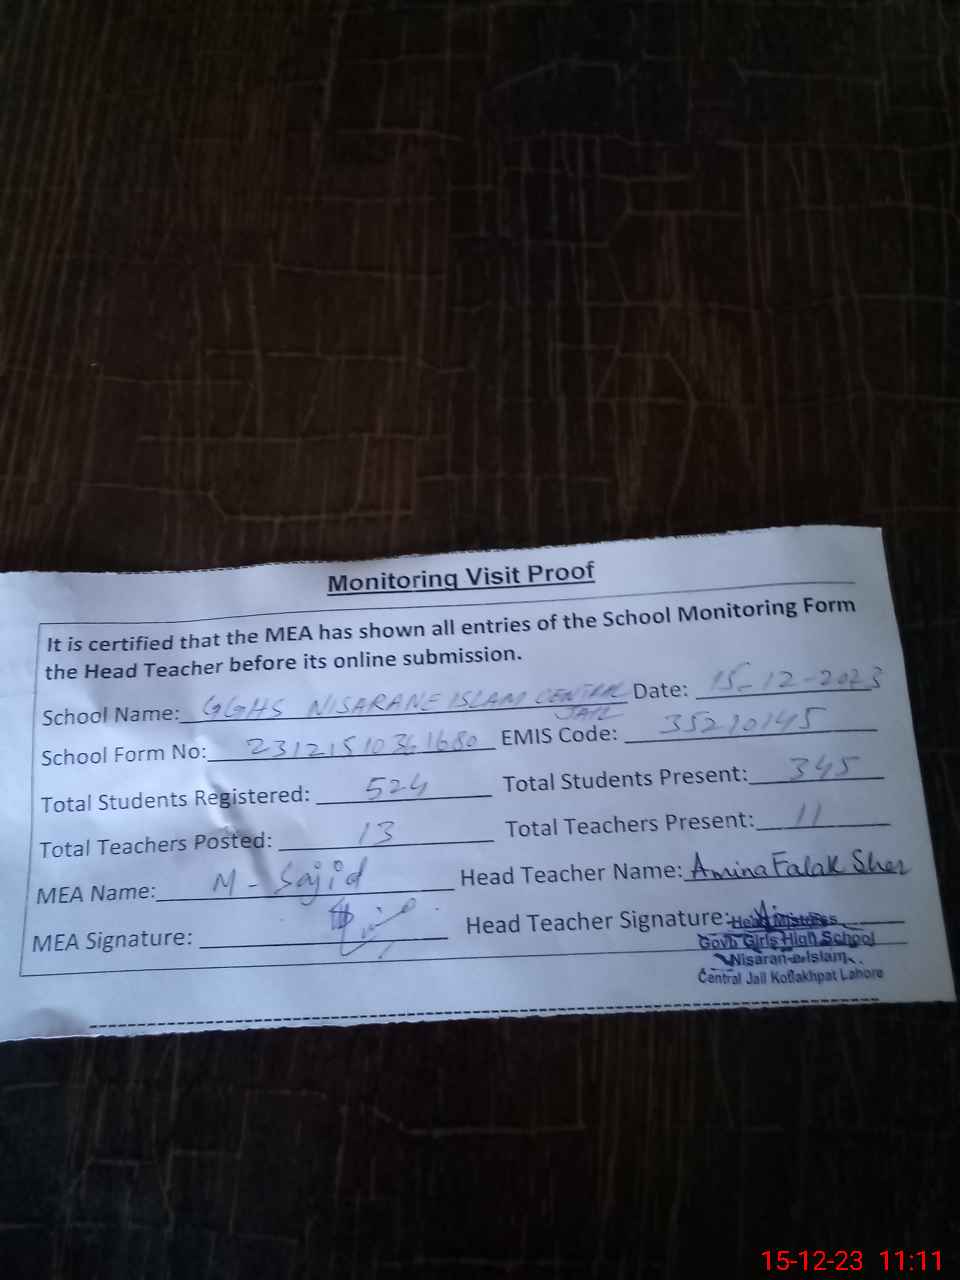 Monitoring Visit Proof
It is certified that the MEA has shown all entries of the School Monitoring Form
the Head Teacher before its online submission.
School Name: GGHS NISARANE ISLAM CENTRAL JAIL Date: 15-12-2023
School Form No: 23121510361680 EMIS Code: 35210145
Total Students Registered: 524 Total Students Present: 345
Total Teachers Posted: 13 Total Teachers Present: 11
MEA Name: M-Sajid Head Teacher Name: Amina Falak Sher
MEA Signature: Head Teacher Signature:
Head Mistress
Govt Girls High School
Nisaran-e-Islam
Central Jail Kotlakhpat Lahore
15-12-23 11:11